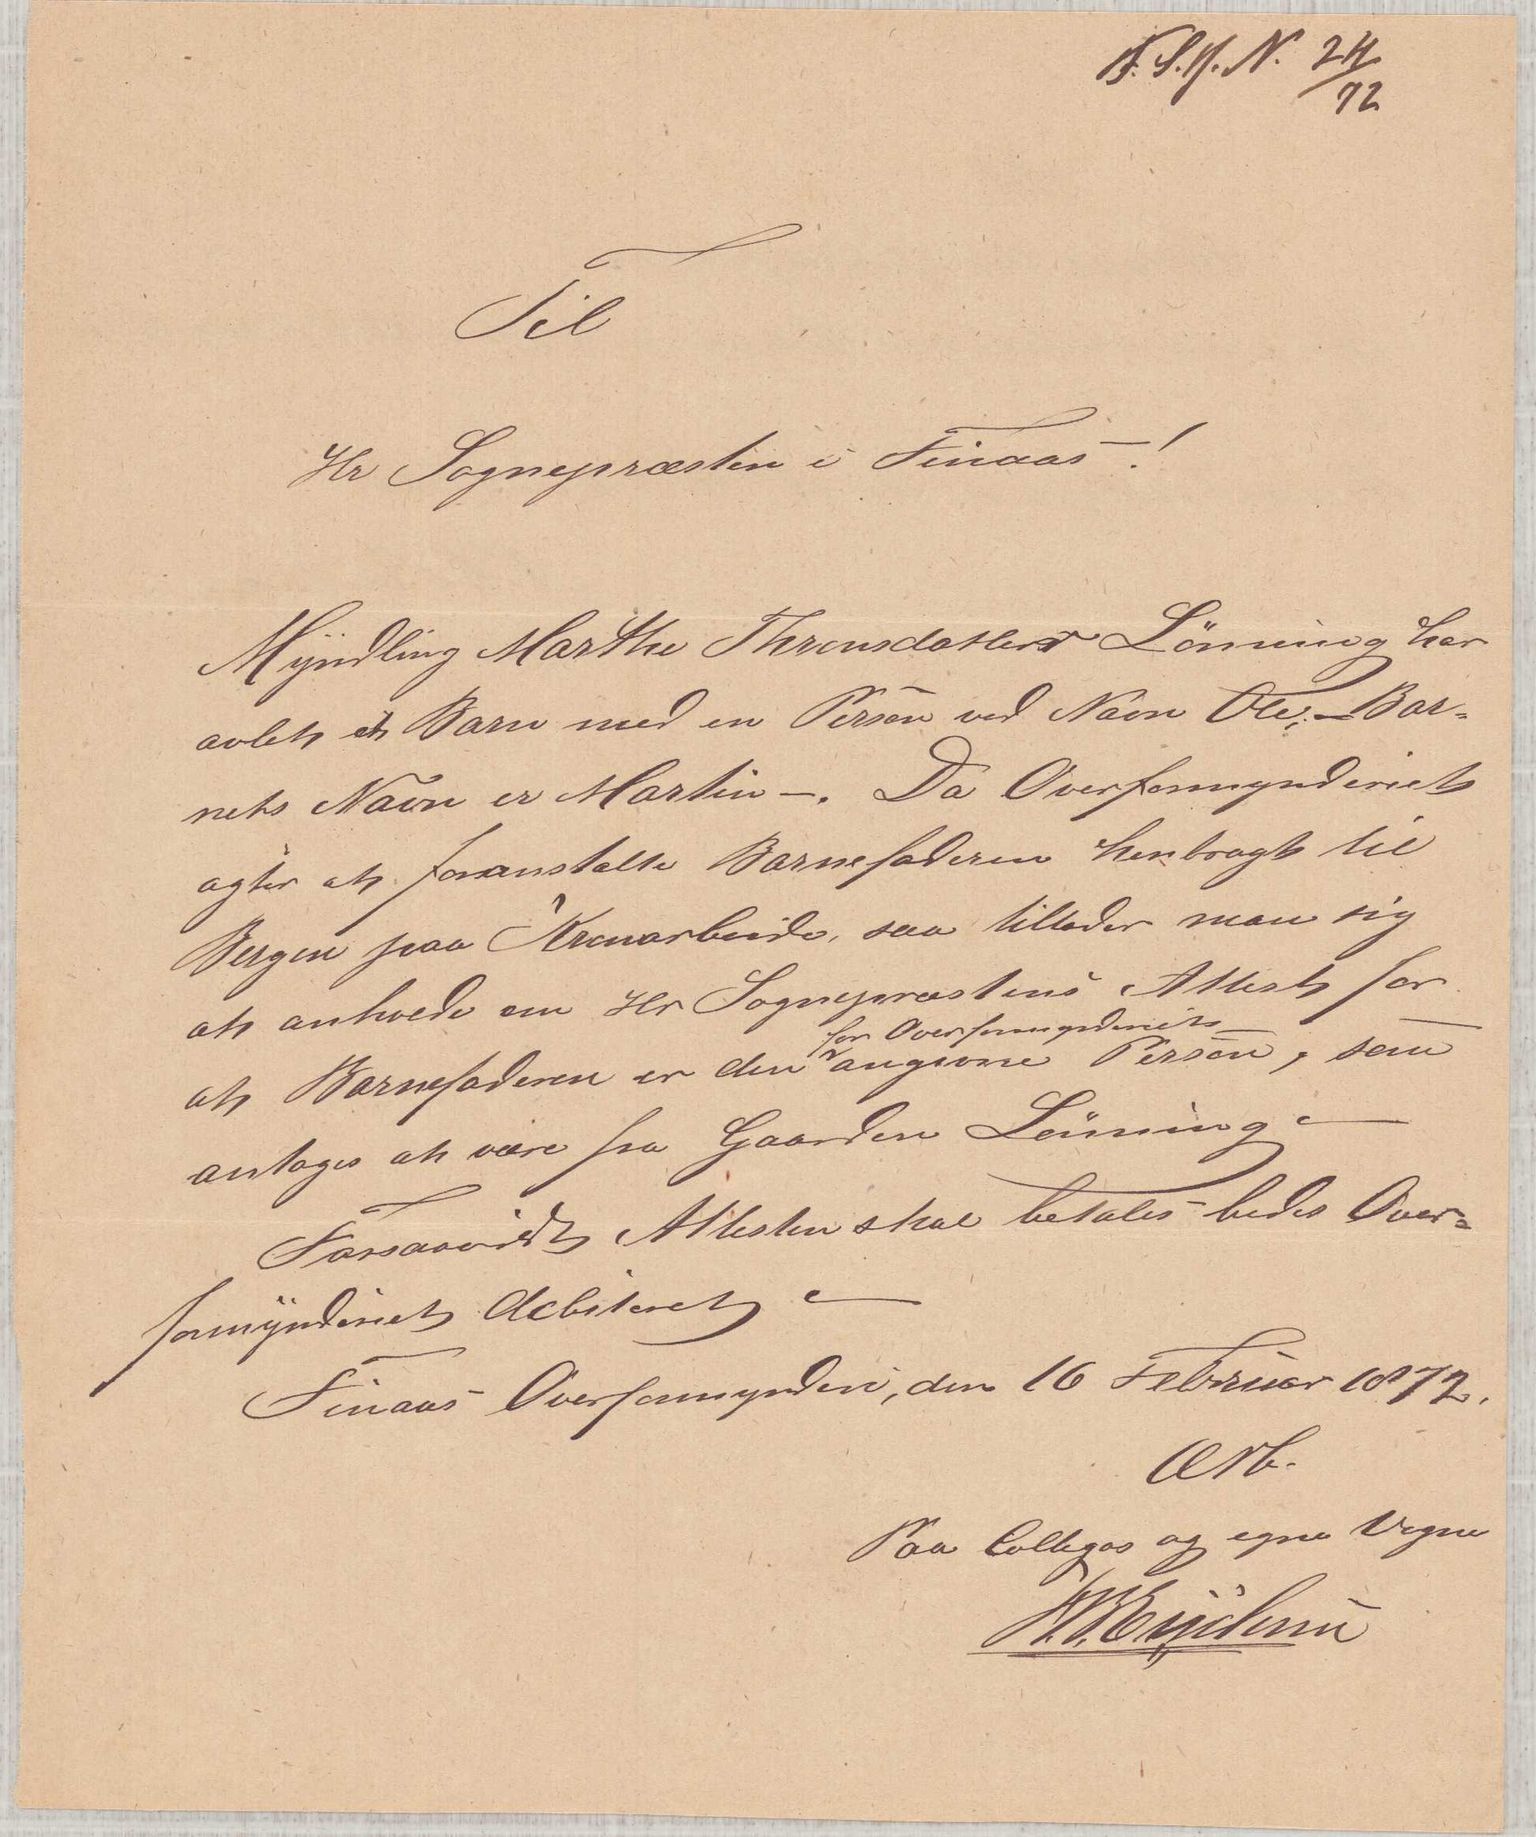 F. S. J. N. 24/72
Til
Hr Sognepræsten i Finaas!
Myndling Marthe Thronsdatter Lönning har
avlet et Barn med en Person ved Navn Ole; – Bar-
nets Navn er Martin –. Da Overformynderiet
agter at foranstalte Barnefaderen henbragt til
Bergen paa Kronarbeide, saa tillader man sig
at anhold om Hr Sognepræstens Attest for
for Overformynderiets
at Barnefaderen er den angivne Person, som
antages at være fra Gaarden Lönning –
Forsaavidt Attesten skal betales bedes Over-
formynderiet debiteret –
Finaas Overformynderi, den 16 Februar 1872.
Ærb.
Paa Collegas og egne Vegne